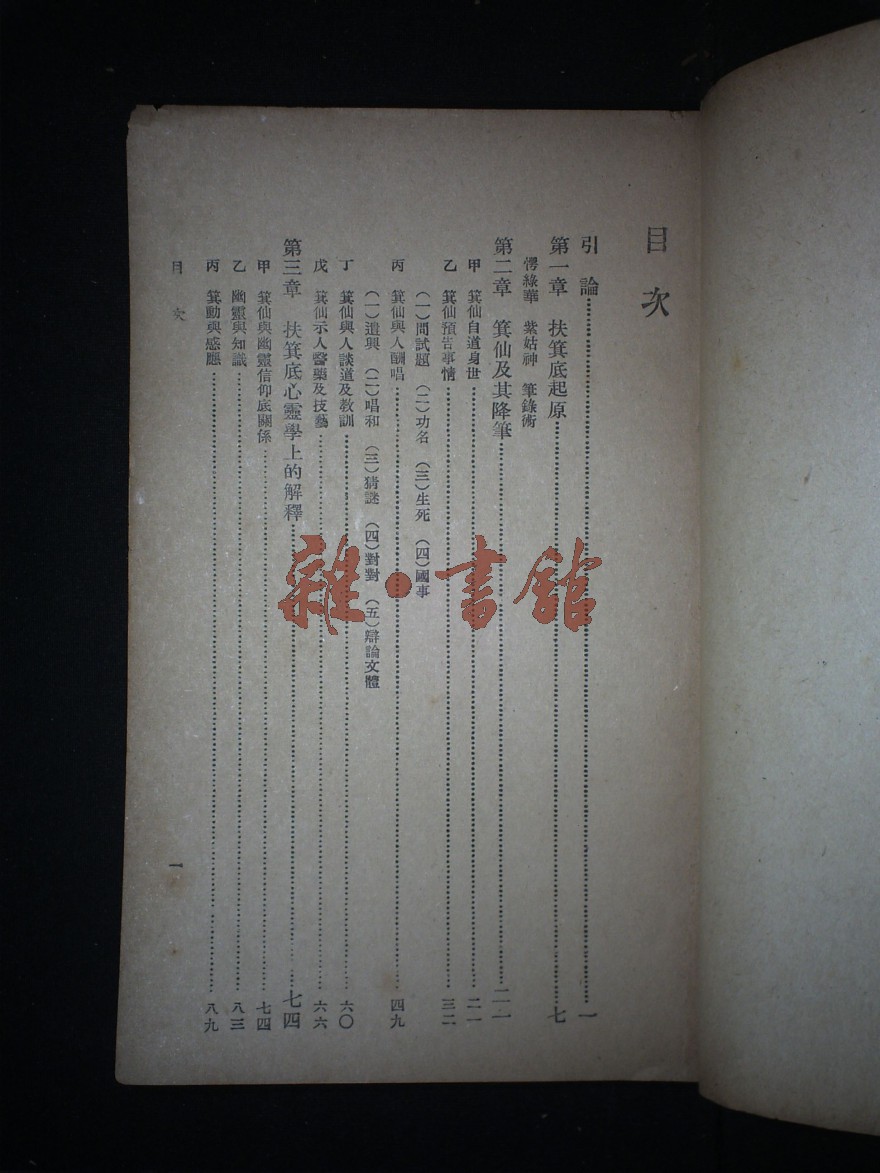 目次
引論……一
第一章 扶箕底起原……七
愕綠華 紫姑神 筆錄術
第二章 箕仙及其降筆……二一
甲 箕仙自道身世……二一
乙 箕仙預告事情……三二
(一)問試題 (二)功名 (三)生死 (四)國事
丙 箕仙與人酬唱……四九
(一)遣興 (二)唱和 (三)猜謎 (四)對對 (五)辯論文體
丁 箕仙與人談道及敎訓……六〇
戊 箕仙示人醫藥及技藝……六六
第三章 扶箕底心靈學上的解釋……七四
甲 箕仙與幽靈信仰底關係……七四
乙 幽靈與知識……八三
丙 箕動與感應……八九
目次
一
雜·書館